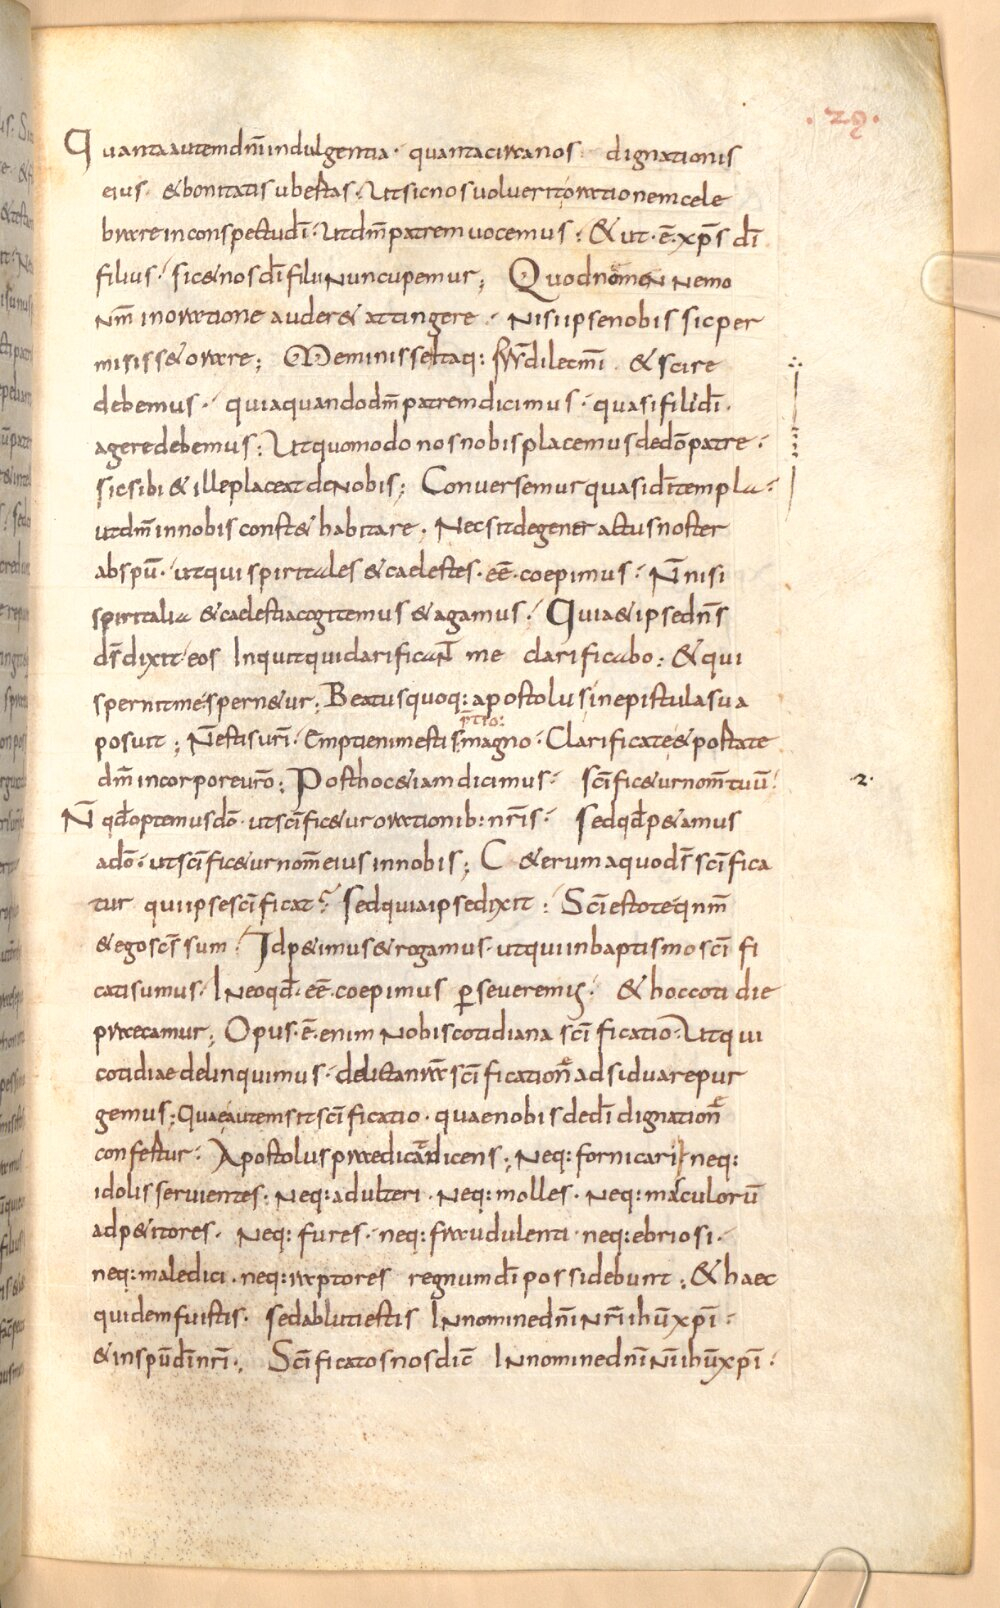 .29.
Quanta autem dn̄i indulgentia · quanta circa nos dignationis
eius · & bonitatis ubertas · Ut sic nos uoluerit orationem cele
brare in conspectu dī · ut dn̄m patrem uocemus : & ut · ē · xp̄s dī
filius · sic & nos dī filii nuncupemur ; Quod nomen nemo
nm̄ in oratione auder& attingere · Nisi ipse nobis sic per
misiss& orare ; Meminisse itaq: frr̄ dilectmī & scire
debemus · quia quando dn̄m patrem dicimus · quasi filii dī ·
agere debemus : Ut quomodo nos nobis placemus de dō patre ·
sic sibi & ille placeat de nobis ; Conuersemur quasi dī templa ·
ut dn̄m in nobis const& habitare · Nec sit degener actus noster
ab spū · ut qui spiritales & caelestes · eē · coepimus · N̄ nisi
spiritalia & caelestia cogitemus & agamus · Quia & ipse dn̄s
ds̄ dixit eos Inquit qui clarificant me clarificabo : & qui
spernit me spern&ur ; Beatus quoq: apostolus in epistula sua
posuit ; N̄ estis urī · Empti enim estis p̄tio: magno · Clarificate & portate
dm̄ in corpore urō : Post hoc &iam dicimus · sc̄ific&ur nom̄ tuū · .2.
N̄ qd̄ optemus dō · ut sc̄ific&ur orationib: nr̄is · Sed qd̄ p&amus
a dō · ut sc̄ific&ur nom̄ eius in nobis ; C&erum a quo ds̄ sc̄ifica
tur qui ipse sc̄ificat ? Sed quia ipse dixit : Sc̄i estote qnm̄
& ego sc̄s sum · Id p&imus & rogamus · ut qui in baptismo sc̄ifi
cati sumus · In eo qd̄ · eē · coepimus perseueremus · & hoc cotidie
praecamur ; Opus · ē · enim nobis cotidiana sc̄ificatio · Ut qui
cotidiae delinquimus · delicta nrā sc̄ificatione adsidua repur
gemus ; Quae autem sit sc̄ificatio · quae nobis de dī dignatione
confertur · Apostolus praedicat dicens ; Neq: fornicarii neq:
idolis seruientes : Neq: adulteri · Neq: molles · Neq: masculorū
adp&itores · Neq: fures · neq: fraudulenti · neq: ebriosi ·
neq: maledici · neq: raptores regnum dī possidebunt ; & haec
quidem fuistis · sed abluti estis In nomine dn̄i nr̄i ihū xp̄i ·
& in spū dī nr̄i · Sc̄ificatos nos dic̄ In nomine dn̄i nr̄i ihū xp̄i ·